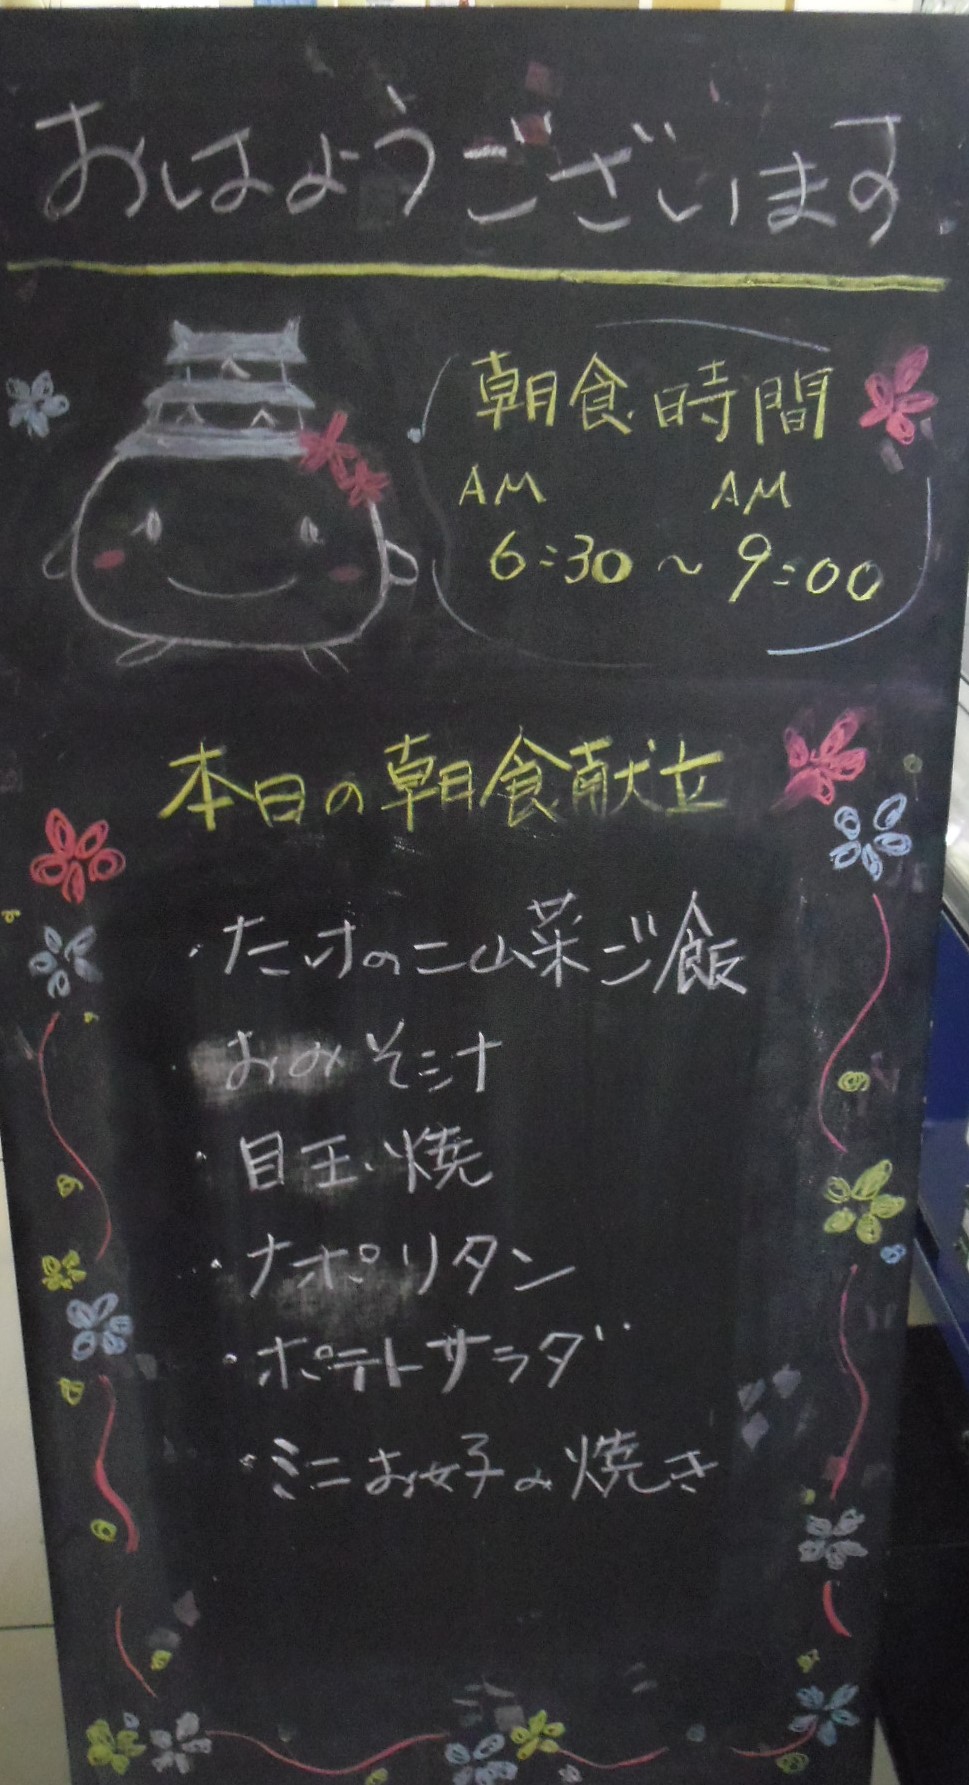 おはようございます
朝食時間
AM AM
6:30～9:00
本日の朝食献立
・たけのこ山菜ご飯
・おみそ汁
・目玉焼
・ナポリタン
・ポテトサラダ
・ミニお好み焼き